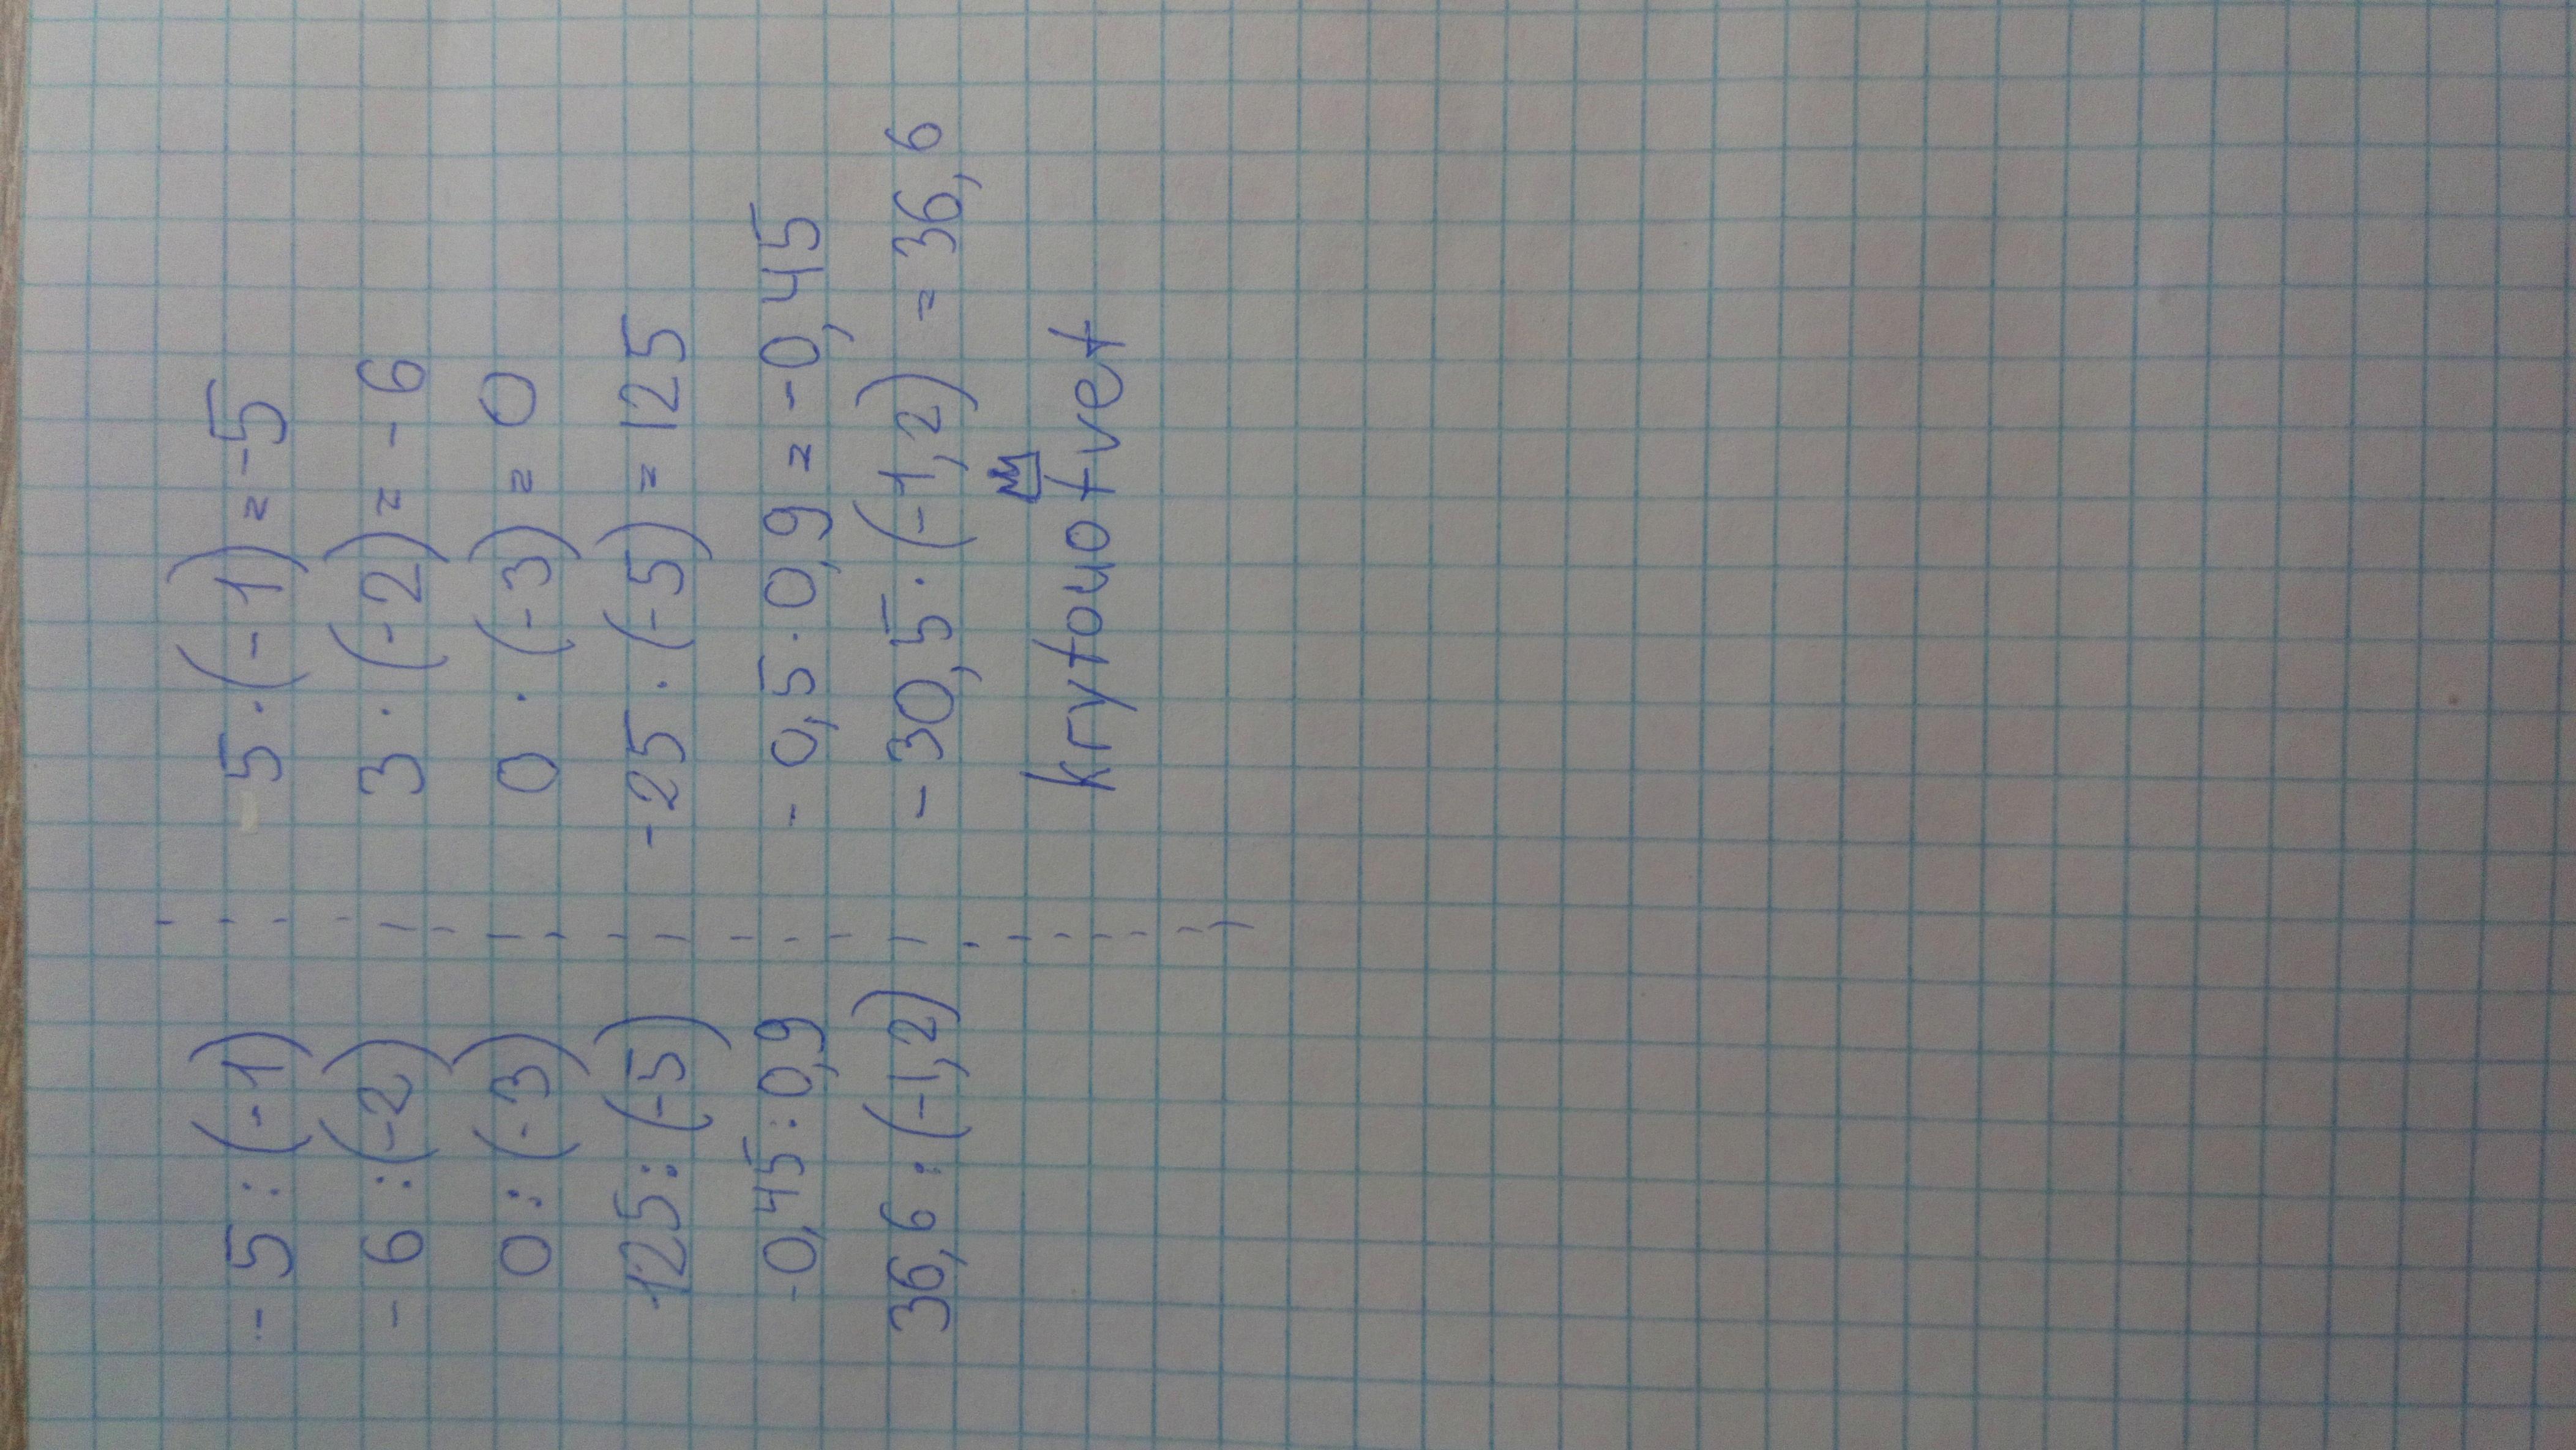 -5:(-1)
-6:(-2)
0:(-3)
125:(-5)
-0,45:0,9
36,6:(-1,2)
5·(-1)=-5
3·(-2)=-6
0·(-3)=0
-25·(-5)=125
-0,5·0,9=-0,45
-30,5·(-1,2)=36,6
krytouotvet